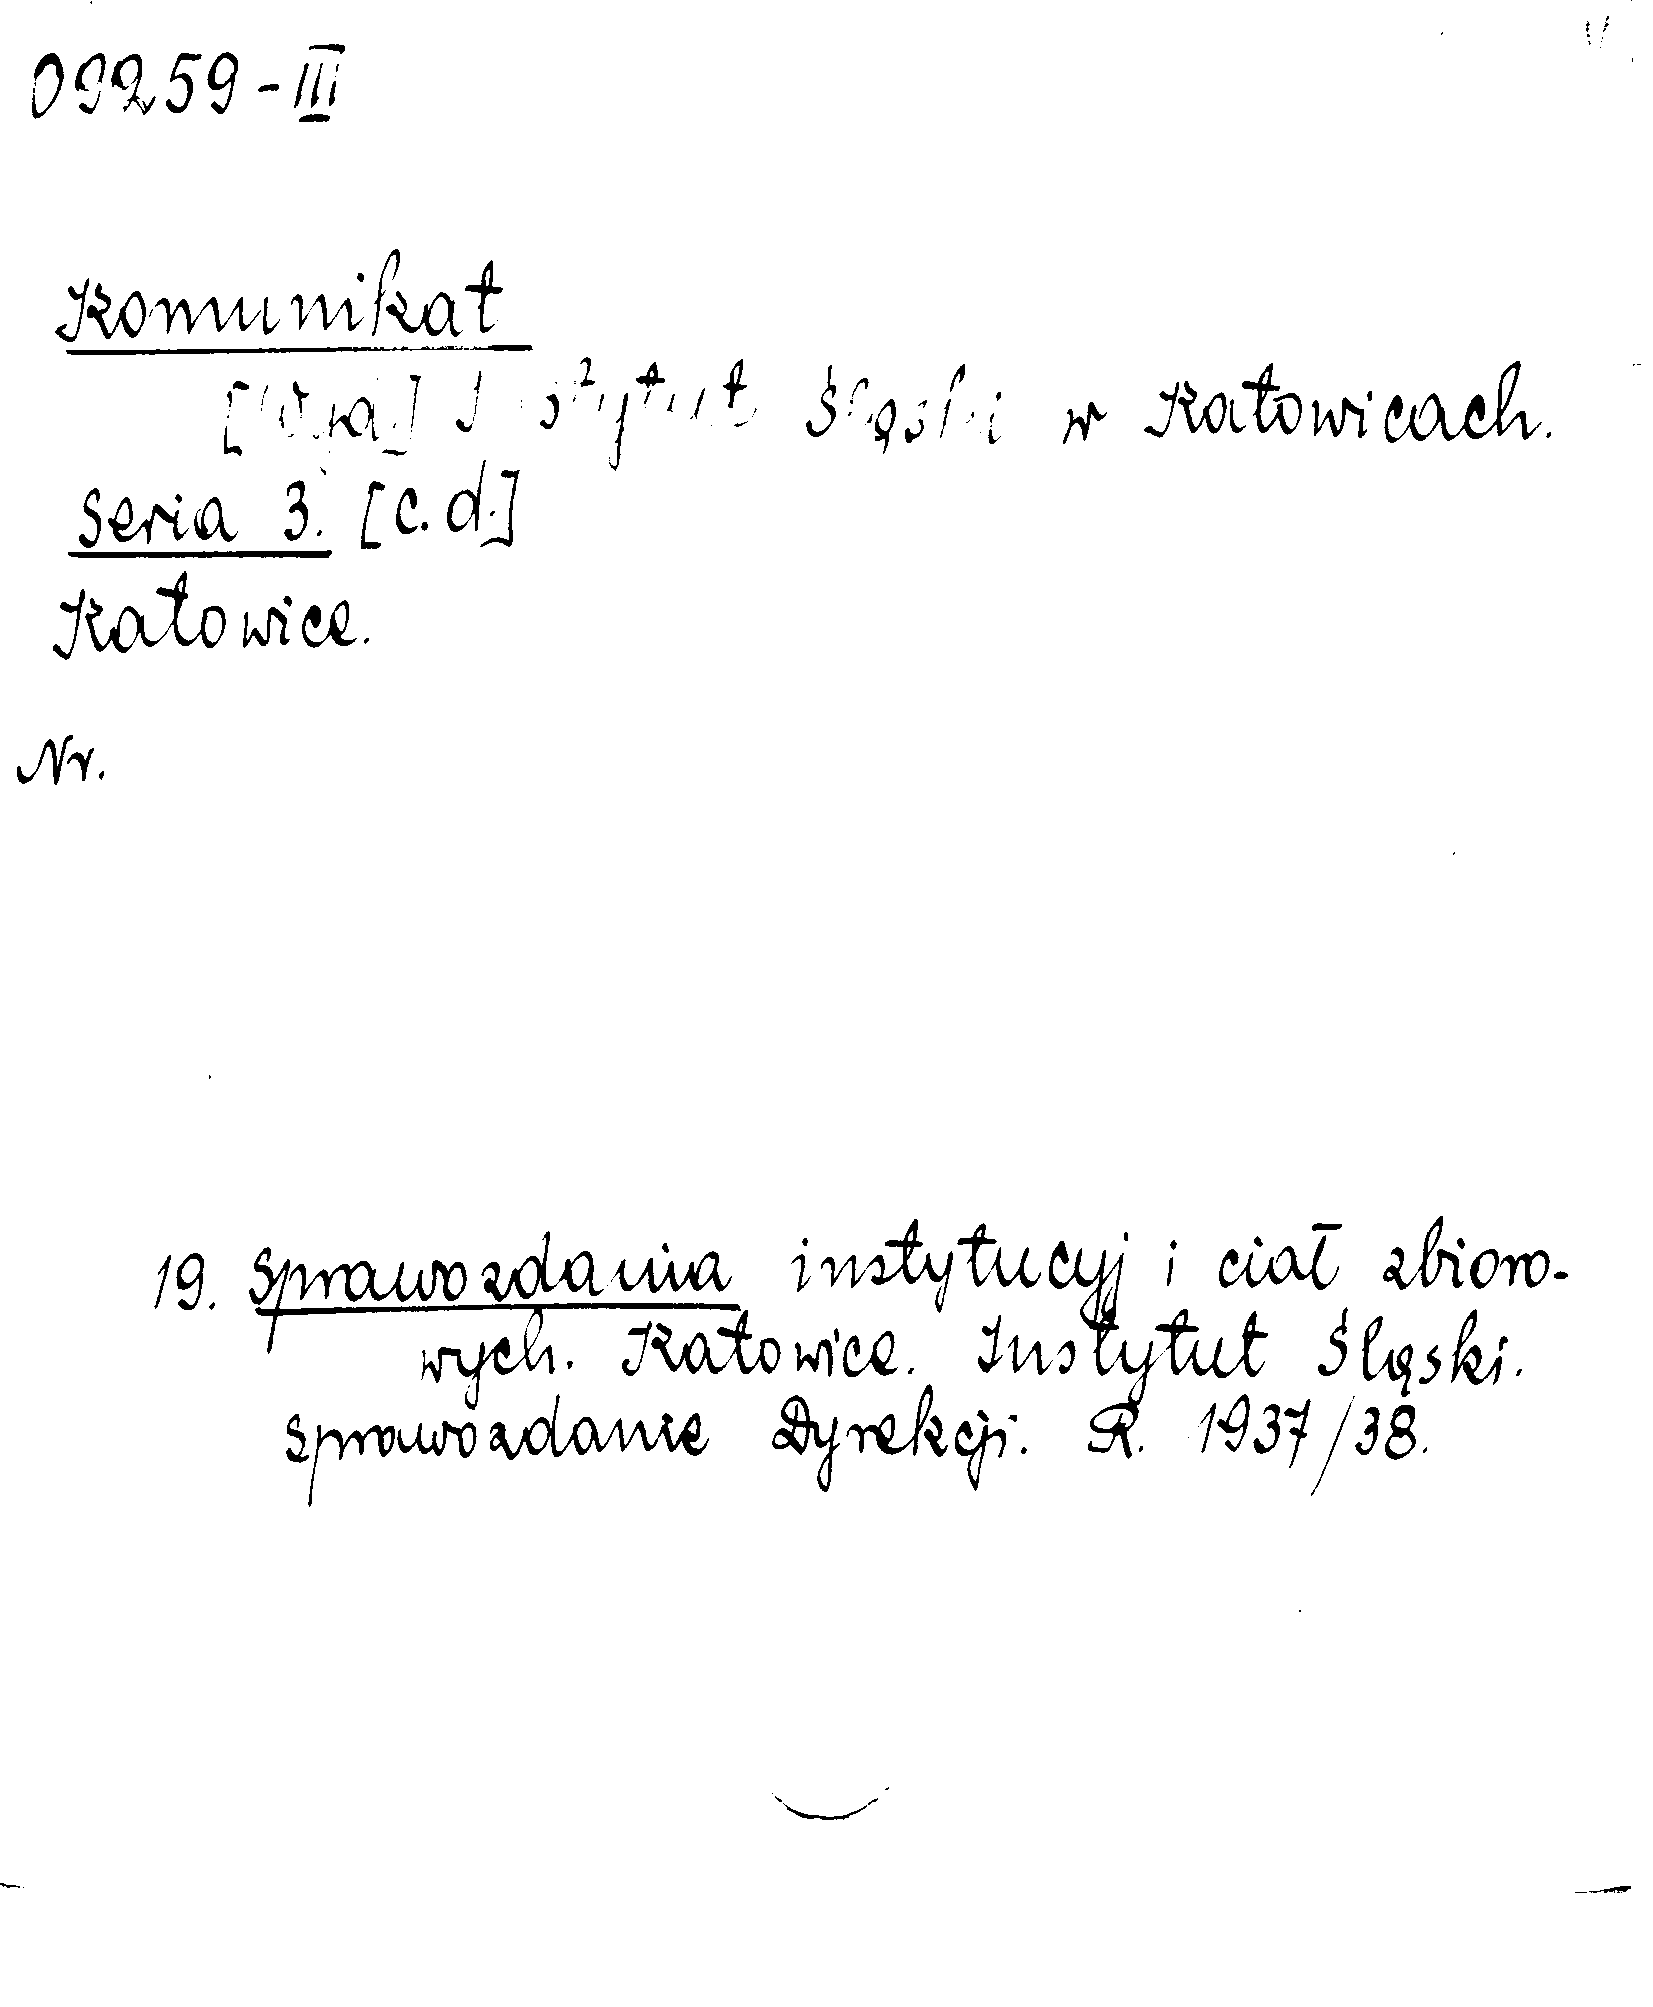 09259-III
Komunikat
Instytut Śląski w Katowicach.
Seria 3. [c.d.]
Katowice.
Nr.
19. Sprawozdania instytucyj i ciał zbioro-
wych. Katowice. Instytut Śląski.
Sprawozdanie Dyrekcji. R. 1937/38.